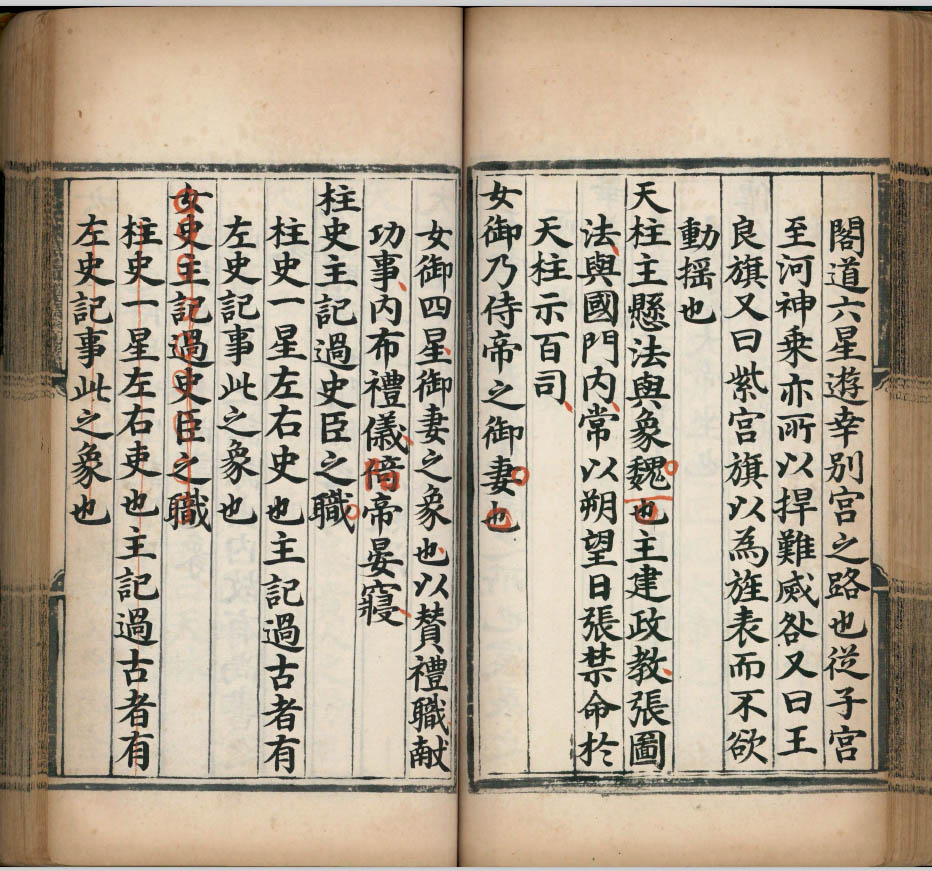 閣道六星遊幸別宮之路也從子宮
至河神乗亦所以捍難威咎又曰王
良旗又曰紫宫旗以為旌表而不欲
動揺也
天柱主懸法與象魏也主建政教張圖
法與國門内常以朔望日張禁命於
天柱示百司
女御乃侍帝之御妻也
女御四星御妻之象也以賛禮職献
功事内布禮儀偣帝晏寢
柱史主記過史臣之職
柱史一星左右史也主記過古者有
左史記事此之象也
女史主記過史臣之職
柱史一星左右吏也主記過古者有
左史記事此之象也